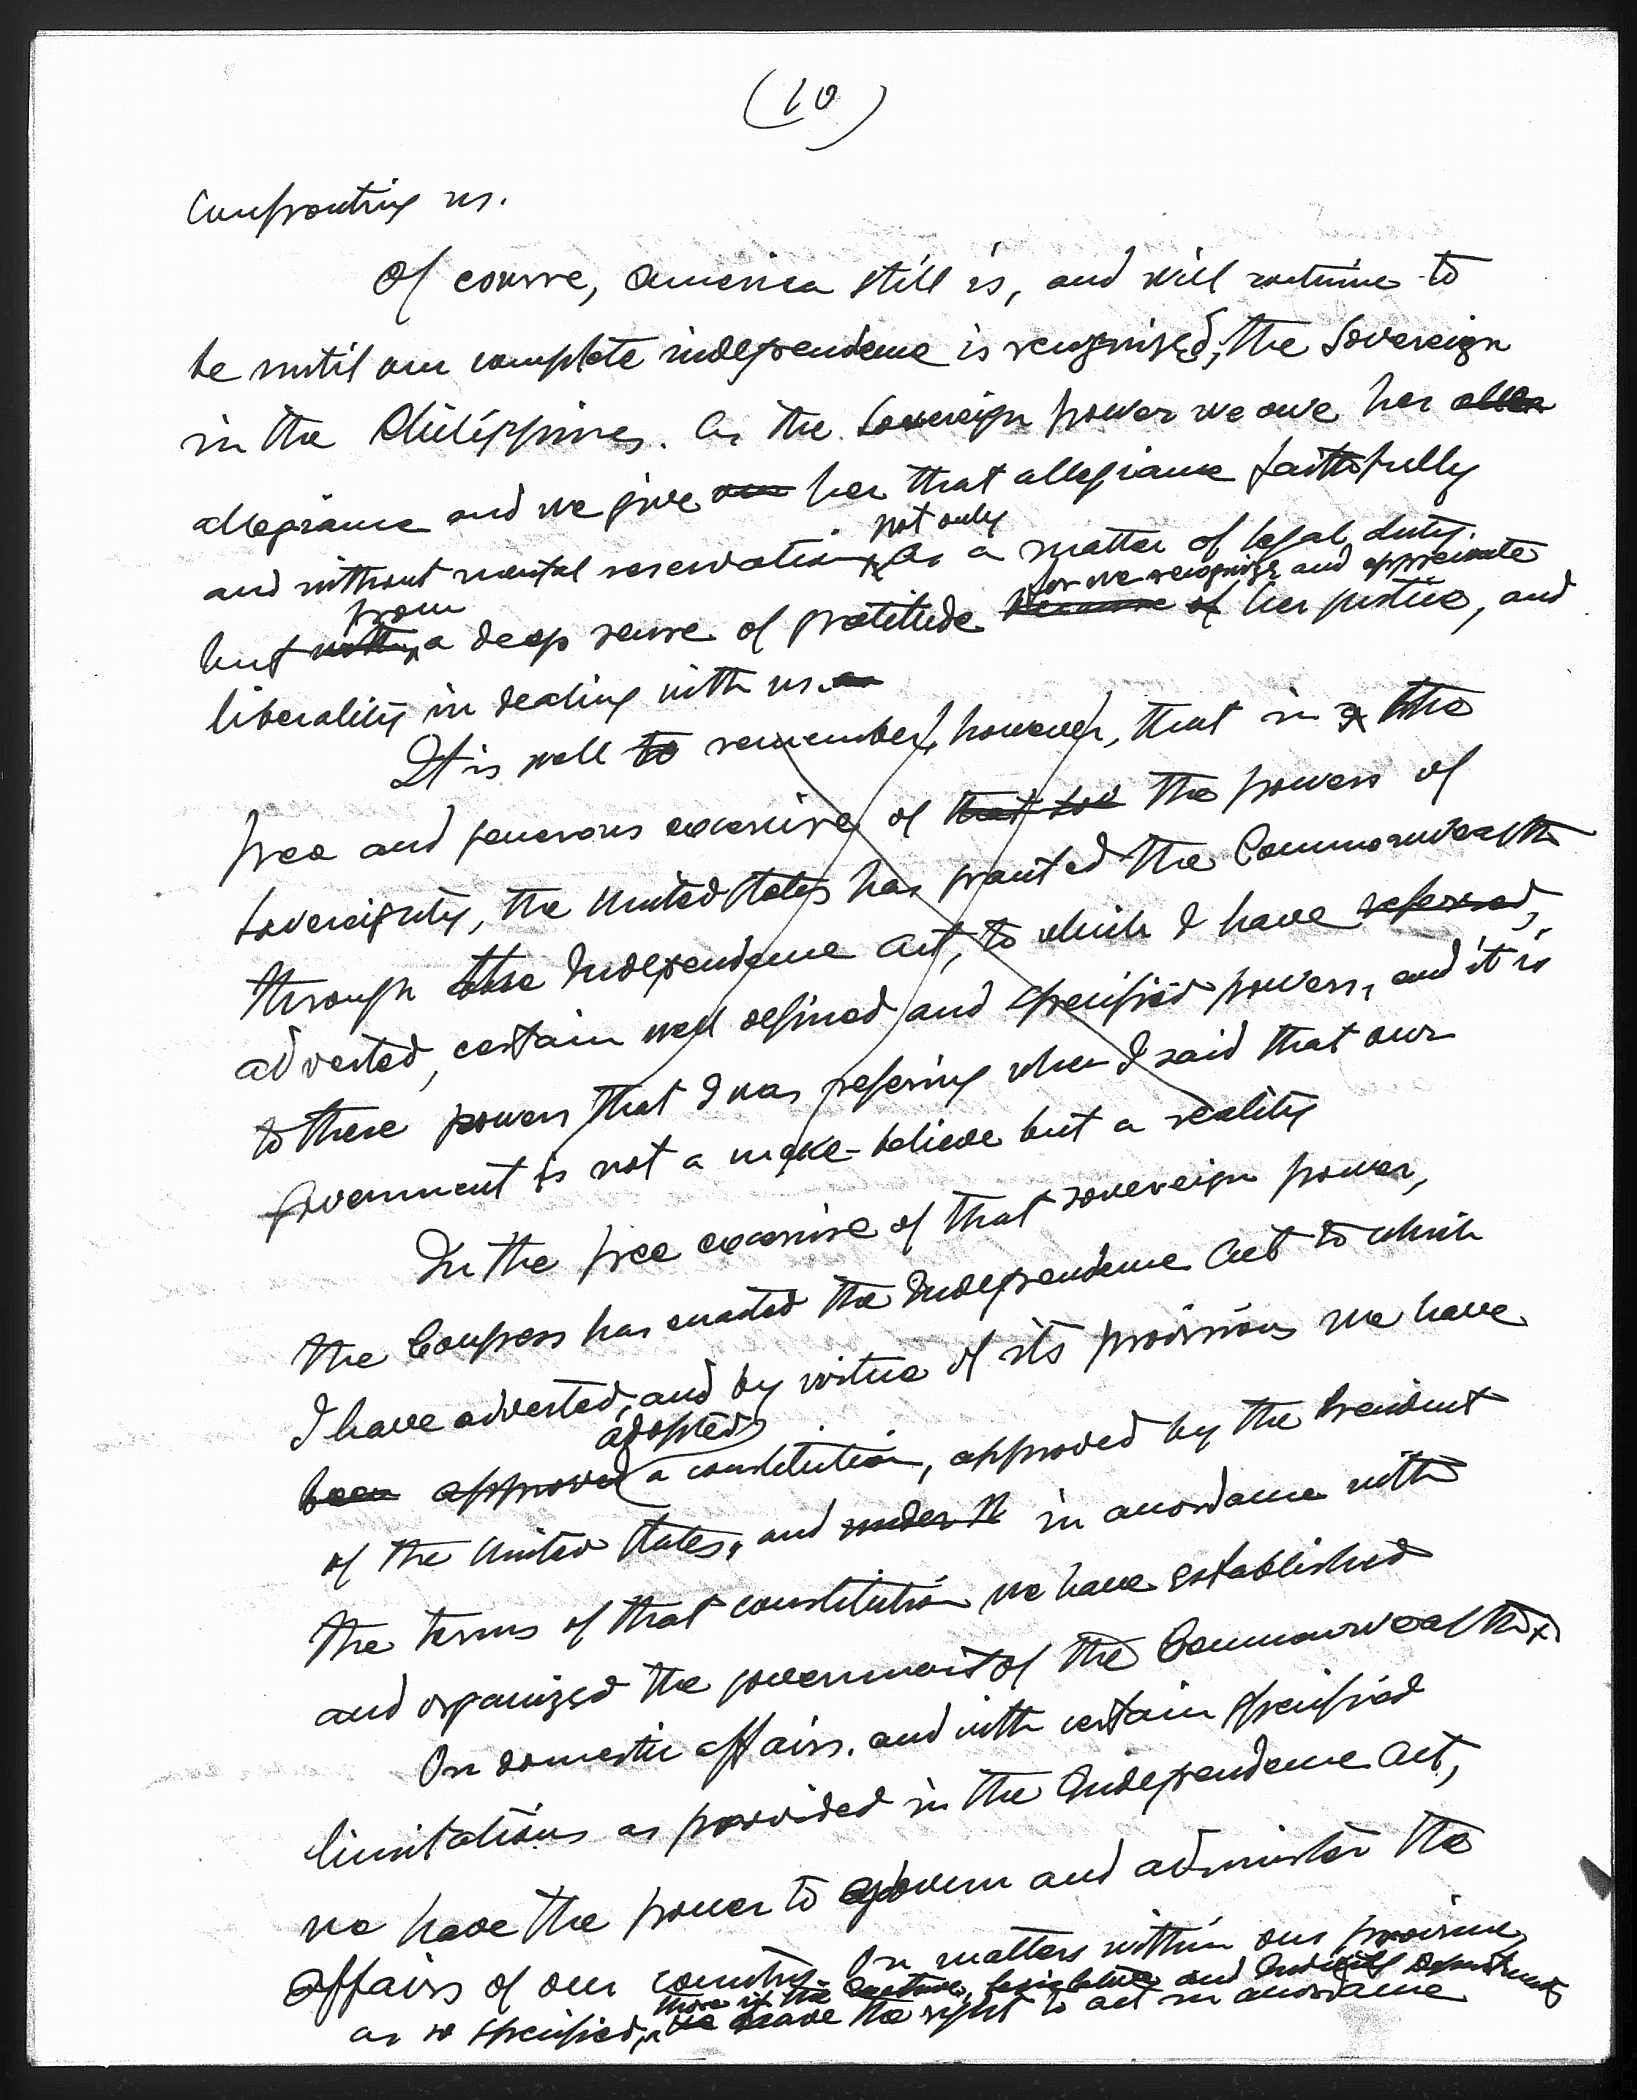 (10)
confronting us.
Of course, America still is, and will continue to
be until our complete independence is recognized, the Sovereign
in the Philippines. As the Sovereign power we owe her allea
allegiance and we give our her that allegiance faithfully
not only
and without mental reservation, as a matter of legal duty.
for we recognize and appreciate
from
but with a deep sense of gratitude because of her justice, and
liberality in dealing with us.
It is well to remember, however, that in the
free and generous exercise of that sov the powers of
Sovereignty, the United States has granted the Commonwealth
through the Independence Act, to which I have referred,
adverted, certain well defined and specified powers, and it is
to these powers that I was refering when I said that our
government is not a make-believe but a reality
In the free exercise of that sovereign power,
the Congress has enacted the Independence Act to which
I have adverted, and by virtue of its provisions we have
adopted
been approved a constitution, approved by the President
of the United States, and under it in accordance with
the terms of that constitution we have established
and organized the government of the Commonwealth.
On domestic affairs. and with certain specified
limitations as provided in the Independence Act,
we have the power to govern and administer the
affairs of our country. On matters within our province,
the Executive, Legislative and Judicial Departments
as so specified, we have the right to act in accordance